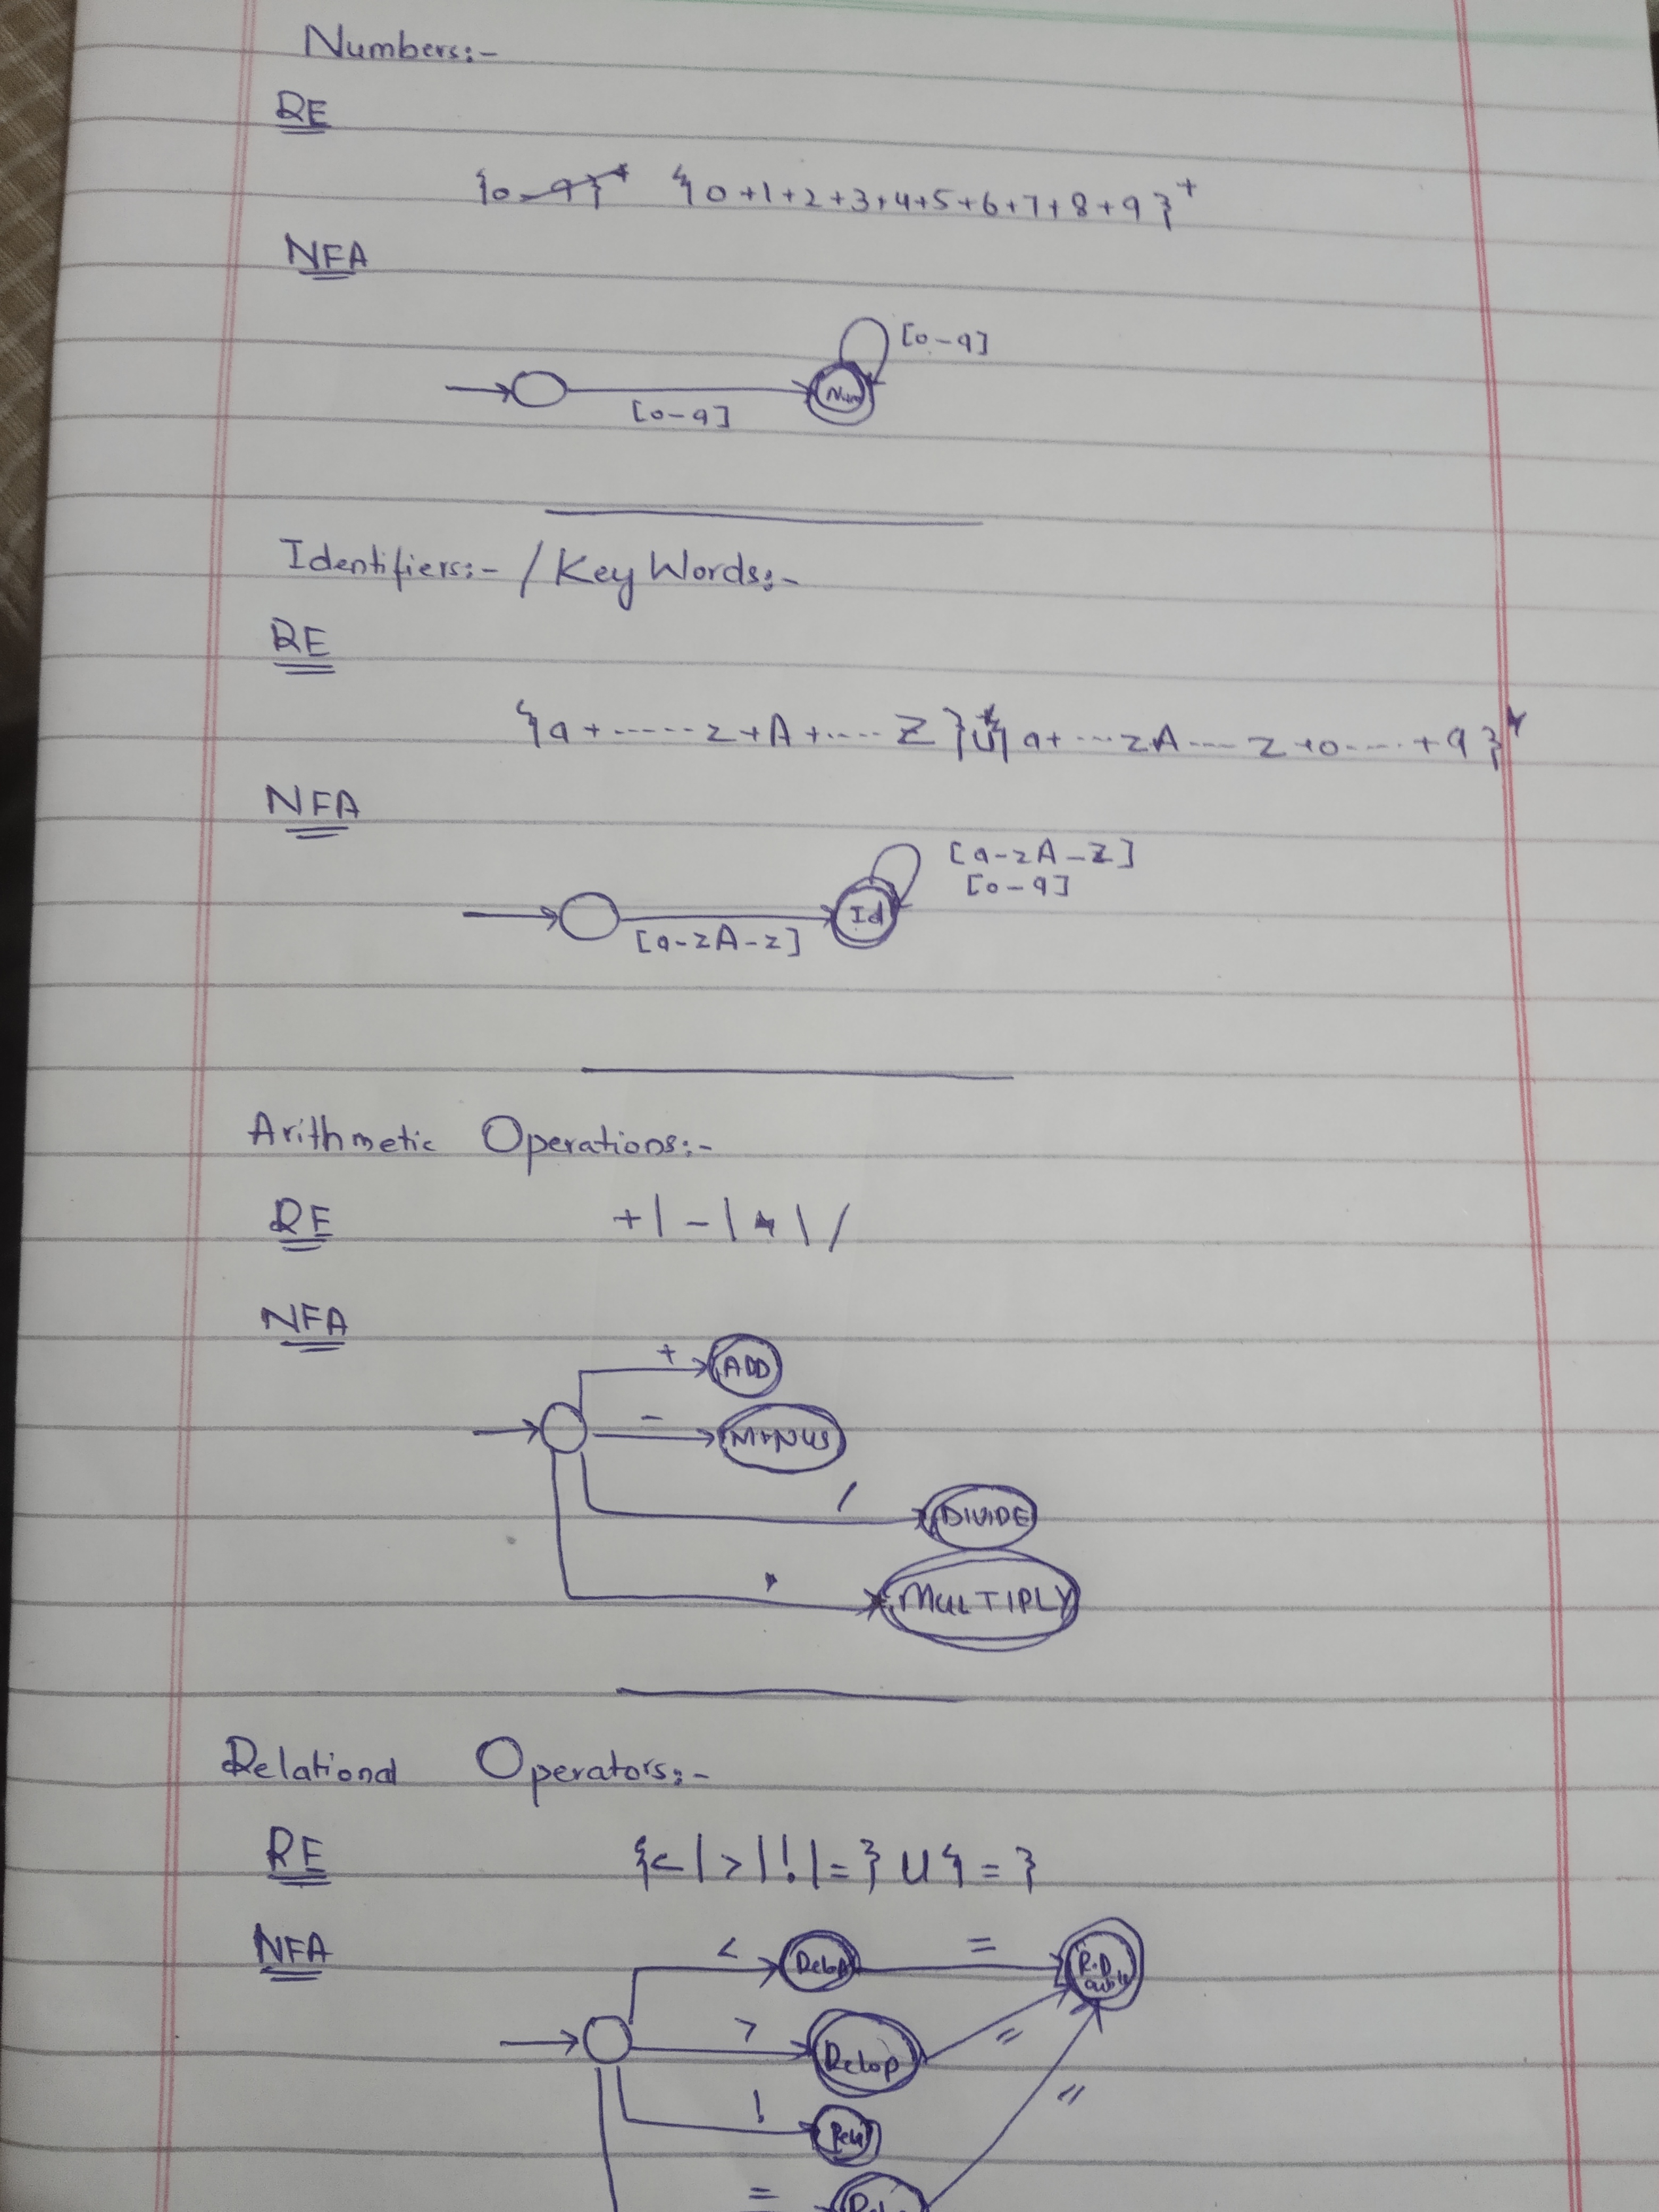 Numbers:-
RE
{0-9}+ {0+1+2+3+4+5+6+7+8+9}+
NFA
[0-9]
Num
[0-9]
Identifiers:- / Key Words:-
RE
{a+-----z+A+----Z}U{a+---zA---Z+0----+9}*
NFA
[a-zA-Z]
[0-9]
Id
[a-zA-Z]
Arithmetic Operations:-
RE +|-|*|/
NFA
+ ADD
- MINUS
/ DIVIDE
* MULTIPLY
Relational Operators:-
RE {<|>|!|=}U{=}
NFA
< Relop =
> Relop =
! =
=